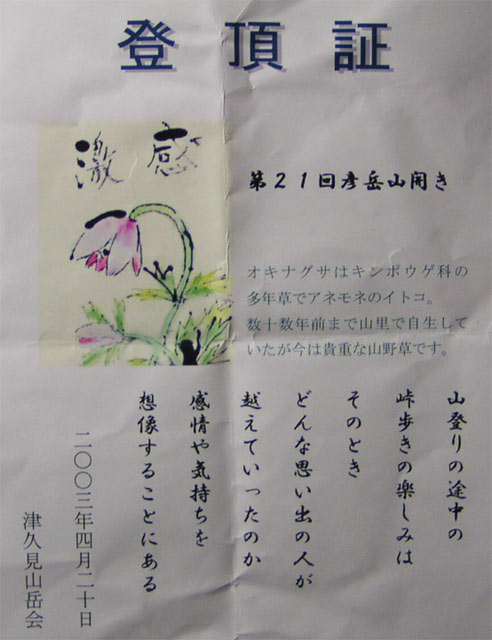 登頂証
感激
第21回彦岳山開き
オキナグサはキンポウゲ科の
多年草でアネモネのイトコ。
数十数年前まで山里で自生して
いたが今は貴重な山野草です。
山登りの途中の
峠歩きの楽しみは
そのとき
どんな思い出の人が
越えていったのか
感情や気持ちを
想像することにある
二〇〇三年四月二十日
津久見山岳会